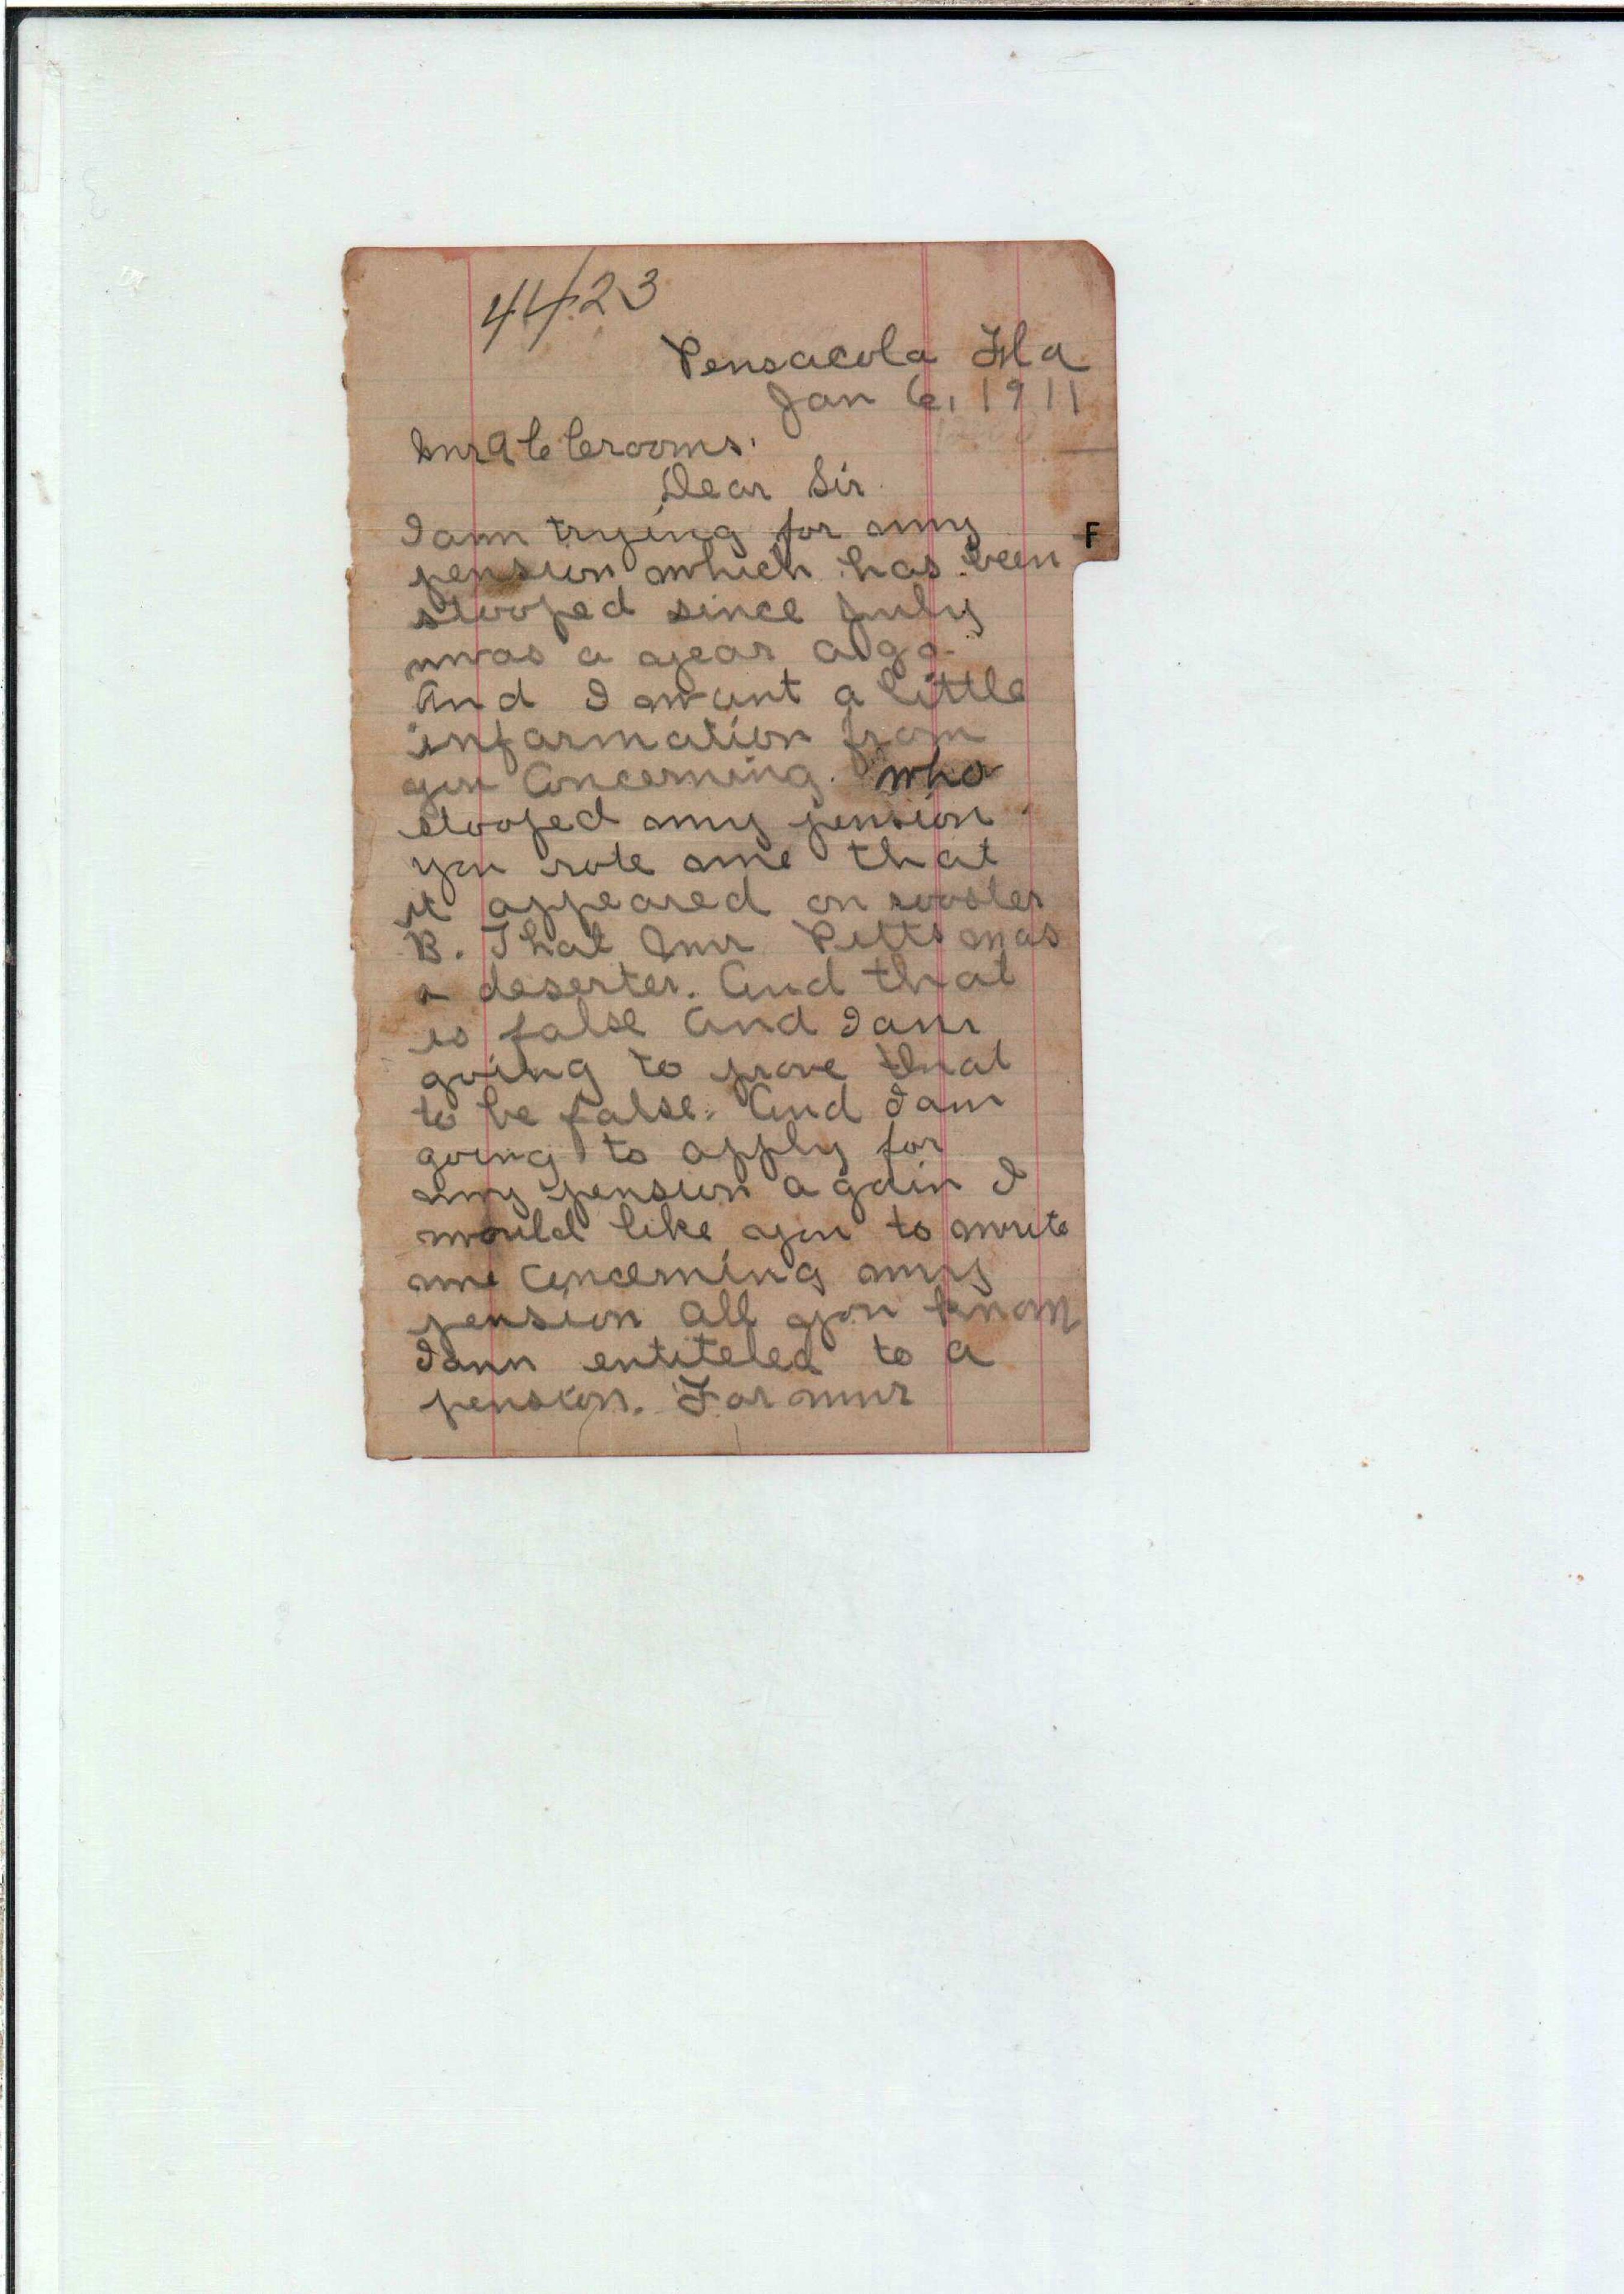 4423
Pensacola Fla
Jan 6, 1911
Mr A C Crooms.
Dear Sir
I am trying for my
F
pension which has been
stooped since July
was a year ago.
And I want a little
information from
you Concerning. who
stooped my pension
you rote me that
it appeared on rooster
B. That Mr Pitts was
a deserter. And that
is false And I am
going to prove that
to be false. And I am
going to apply for
my pension again I
would like you to write
me Concerning my
pension All you know
I am entiteled to a
pension. For mr